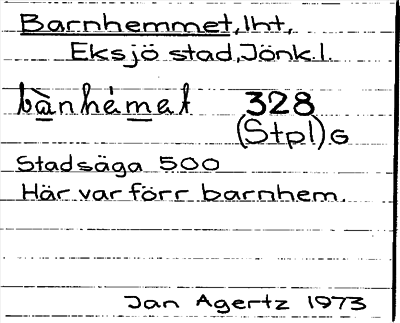 Barnhemmet, lht,
Eksjö stad, Jönk.l.
bànhémet 328
(Stpl) G
Stadsäga 500
Här var förr barnhem.
Jan Agertz 1973